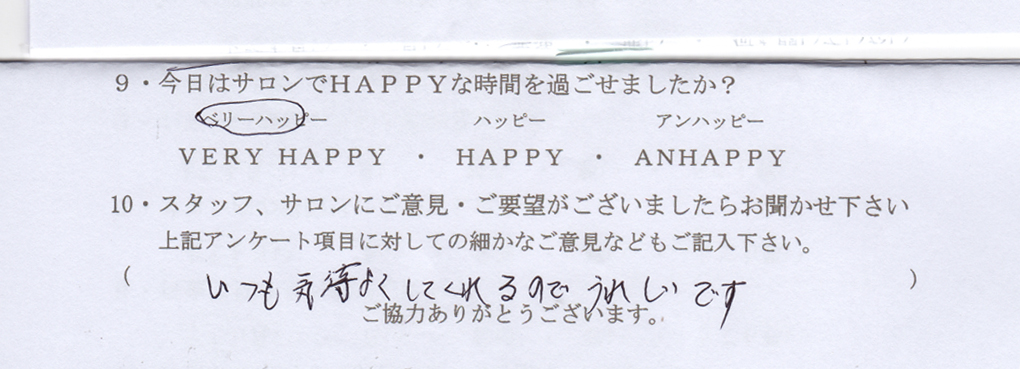 9・今日はサロンでHAPPYな時間を過ごせましたか？
ベリーハッピー ハッピー アンハッピー
VERY HAPPY ・ HAPPY ・ ANHAPPY
10・スタッフ、サロンにご意見・ご要望がございましたらお聞かせ下さい
上記アンケート項目に対しての細かなご意見などもご記入下さい。
( いつも気待よくしてくれるのでうれしいです )
ご協力ありがとうございます。